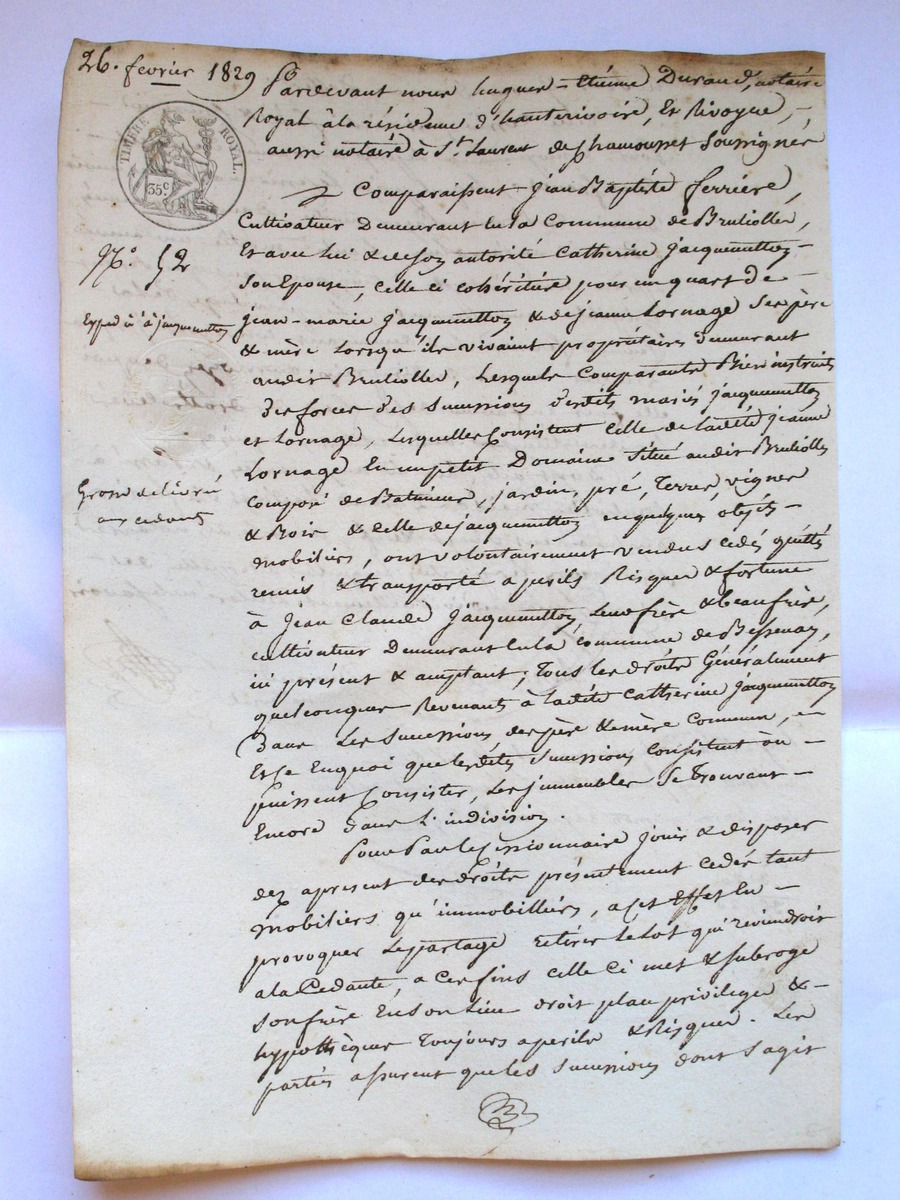 26. fevrier 1829
Pardevant nous hugues-Etiénne Durand, notaire
Royal à la résidence d'hauterivoire, Et Rivoyue, -
aussi notairé à St. Laurent de Chamousset Soussignés
TIMBRE ROYAL.
35c.
Comparaissent jean Baptiste ferriere,
Cultivateur Demeurant en la Commune de Brulioller,
No. 52
Et avec Lui & de son autorité Catherine jacquemetton -
Son Epouse, celle ci cohéritiére pour un quart de -
Exped ié à jacquemetton
jean-marie jacquemetton & de jeanne Lornage Ses père
& mère Lorsqu'ils vivaient propriétaires demeurant
audit Brulioller, Lesquels Comparants Bien instruits
des forces des successions desdits mariés jacquemetton
et Lornage, Lesquelles Consistent Celle de ladité jeanne
Lornage En un petit Domaine Situé audit Brulioller
Grosse delivrée
aux cedants
composé de Batiments, jardin, pré, Terres, vignes
& Bois & celle de jacquemetton en quelques objets -
mobiliers, ont volontairement vendus cedés quittés
remis & transporté a perils Risques & fortune
à jean Claude jacquemetton, Leur frère & beaufrère,
cultivateur Demeurant en la commune de Bessenay,
ici présent & acceptant; Tous les droits Généralement
quelconques Revenants à ladité Catherine jacquemetton
Dans Les Successions des père & mère communs, en -
Et Ce Enquoi que lesdités Successions consistent ou -
puissent Consister, Les jmmeubles Se Trouvant -
Encore Dans L'indivision.
Pour Par le Cessionnaire jouir & disposer
dez apresent des droits présentement cedés tant
mobiliers qu'immobilliers, a Cet Effet En -
provoquer Le partage retirer Le Lot qui reviendroit
a la Cedante, a Ces fins celle Ci met & subroge
son frère En Son Lieu droit place privilege & -
hypothèques Toujours a perils & Risques. Les
parties assurent que les Successions dont S'agit